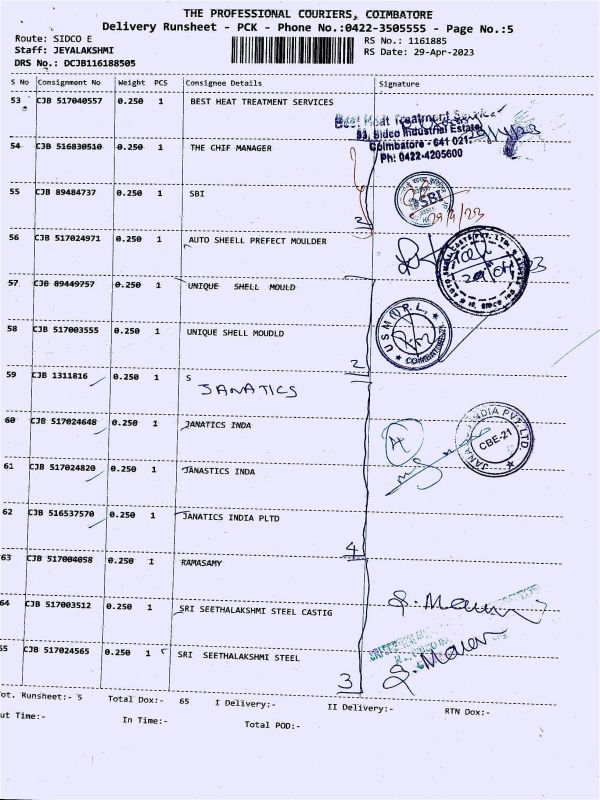 THE PROFESSIONAL COURIERS, COIMBATORE
Delivery Runsheet - PCK - Phone No.:0422-3505555 - Page No.:5
Route: SIDCO E
RS No.: 1161885
Staff: JEYALAKSHMI
RS Date: 29-Apr-2023
DRS No.: DCJB116188505
S No Consignment No Weight PCS Consignee Details Signature
53 CJB 517040557 0.250 1 BEST HEAT TREATMENT SERVICES
Best Heat Treatment Service
93, Sidco Industrial Estate
Coimbatore - 641 021.
Ph: 0422-4205600
54 CJB 516830510 0.250 1 THE CHIF MANAGER
55 CJB 89484737 0.250 1 SBI
SBI
29/4/23
2
56 CJB 517024971 0.250 1 AUTO SHEELL PREFECT MOULDER
57 CJB 89449757 0.250 1 UNIQUE SHELL MOULD
58 CJB 517003555 0.250 1 UNIQUE SHELL MOUDLD
U S M (I) P. L.
COIMBATORE-21
2
59 CJB 1311816 0.250 1 S
JANATICS
60 CJB 517024648 0.250 1 JANATICS INDA
4
JANATICS INDIA PVT. LTD.
CBE-21
61 CJB 517024820 0.250 1 JANASTICS INDA
62 CJB 516537570 0.250 1 JANATICS INDIA PLTD
4
63 CJB 517004058 0.250 1 RAMASAMY
64 CJB 517003512 0.250 1 SRI SEETHALAKSHMI STEEL CASTIG
65 CJB 517024565 0.250 1 SRI SEETHALAKSHMI STEEL
3
Tot. Runsheet:- 5 Total Dox:- 65 I Delivery:- II Delivery:- RTN Dox:-
Out Time:- In Time:- Total POD:-